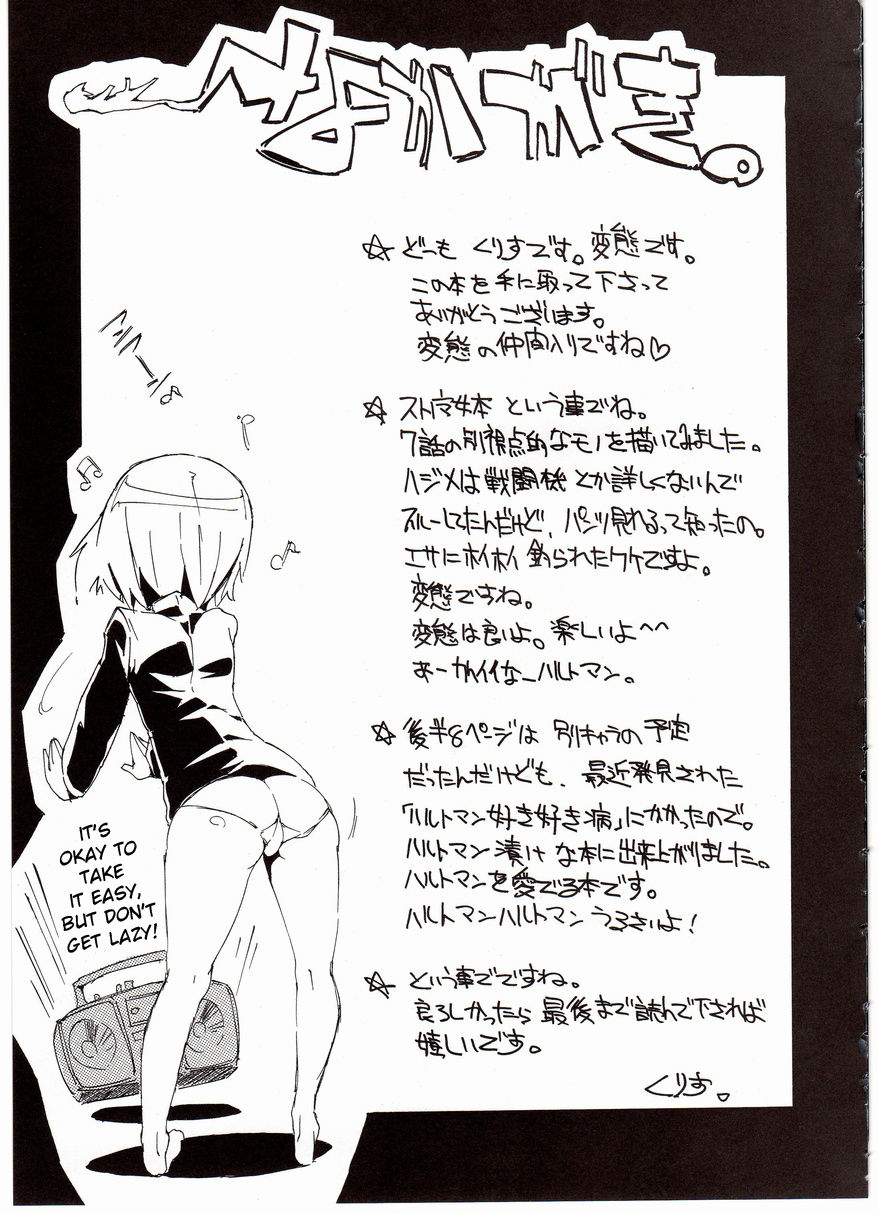 なかがき。
☆ どーも くりすです。変態です。
この本を手に取って下さって
ありがとうございます。
変態の仲間入りですね♡
☆ ストパン本 という事でね。
7話の別視点的なモノを描いてみました。
ハジメは戦闘機とか詳しくないんで
スルーしてたんだけど、パンツ見れるって知ったの。
エサにホイホイ釣られたワケですよ。
変態ですね。
変態は良いよ。楽しいよ^^
あーかわイイなーハルトマン。
☆ 後半8ページは 別キャラの予定
だったんだけども、最近発見された
「ハルトマン好き好き病」にかかったので。
ハルトマン漬けな本に出来上がりました。
ハルトマンを愛でる本です。
ハルトマンハルトマンうるさいよ!
☆ という事でですね。
良ろしかったら最後まで読んで下されば
嬉しいです。
くりす。
IT'S
OKAY TO
TAKE
IT EASY,
BUT DON'T
GET LAZY!